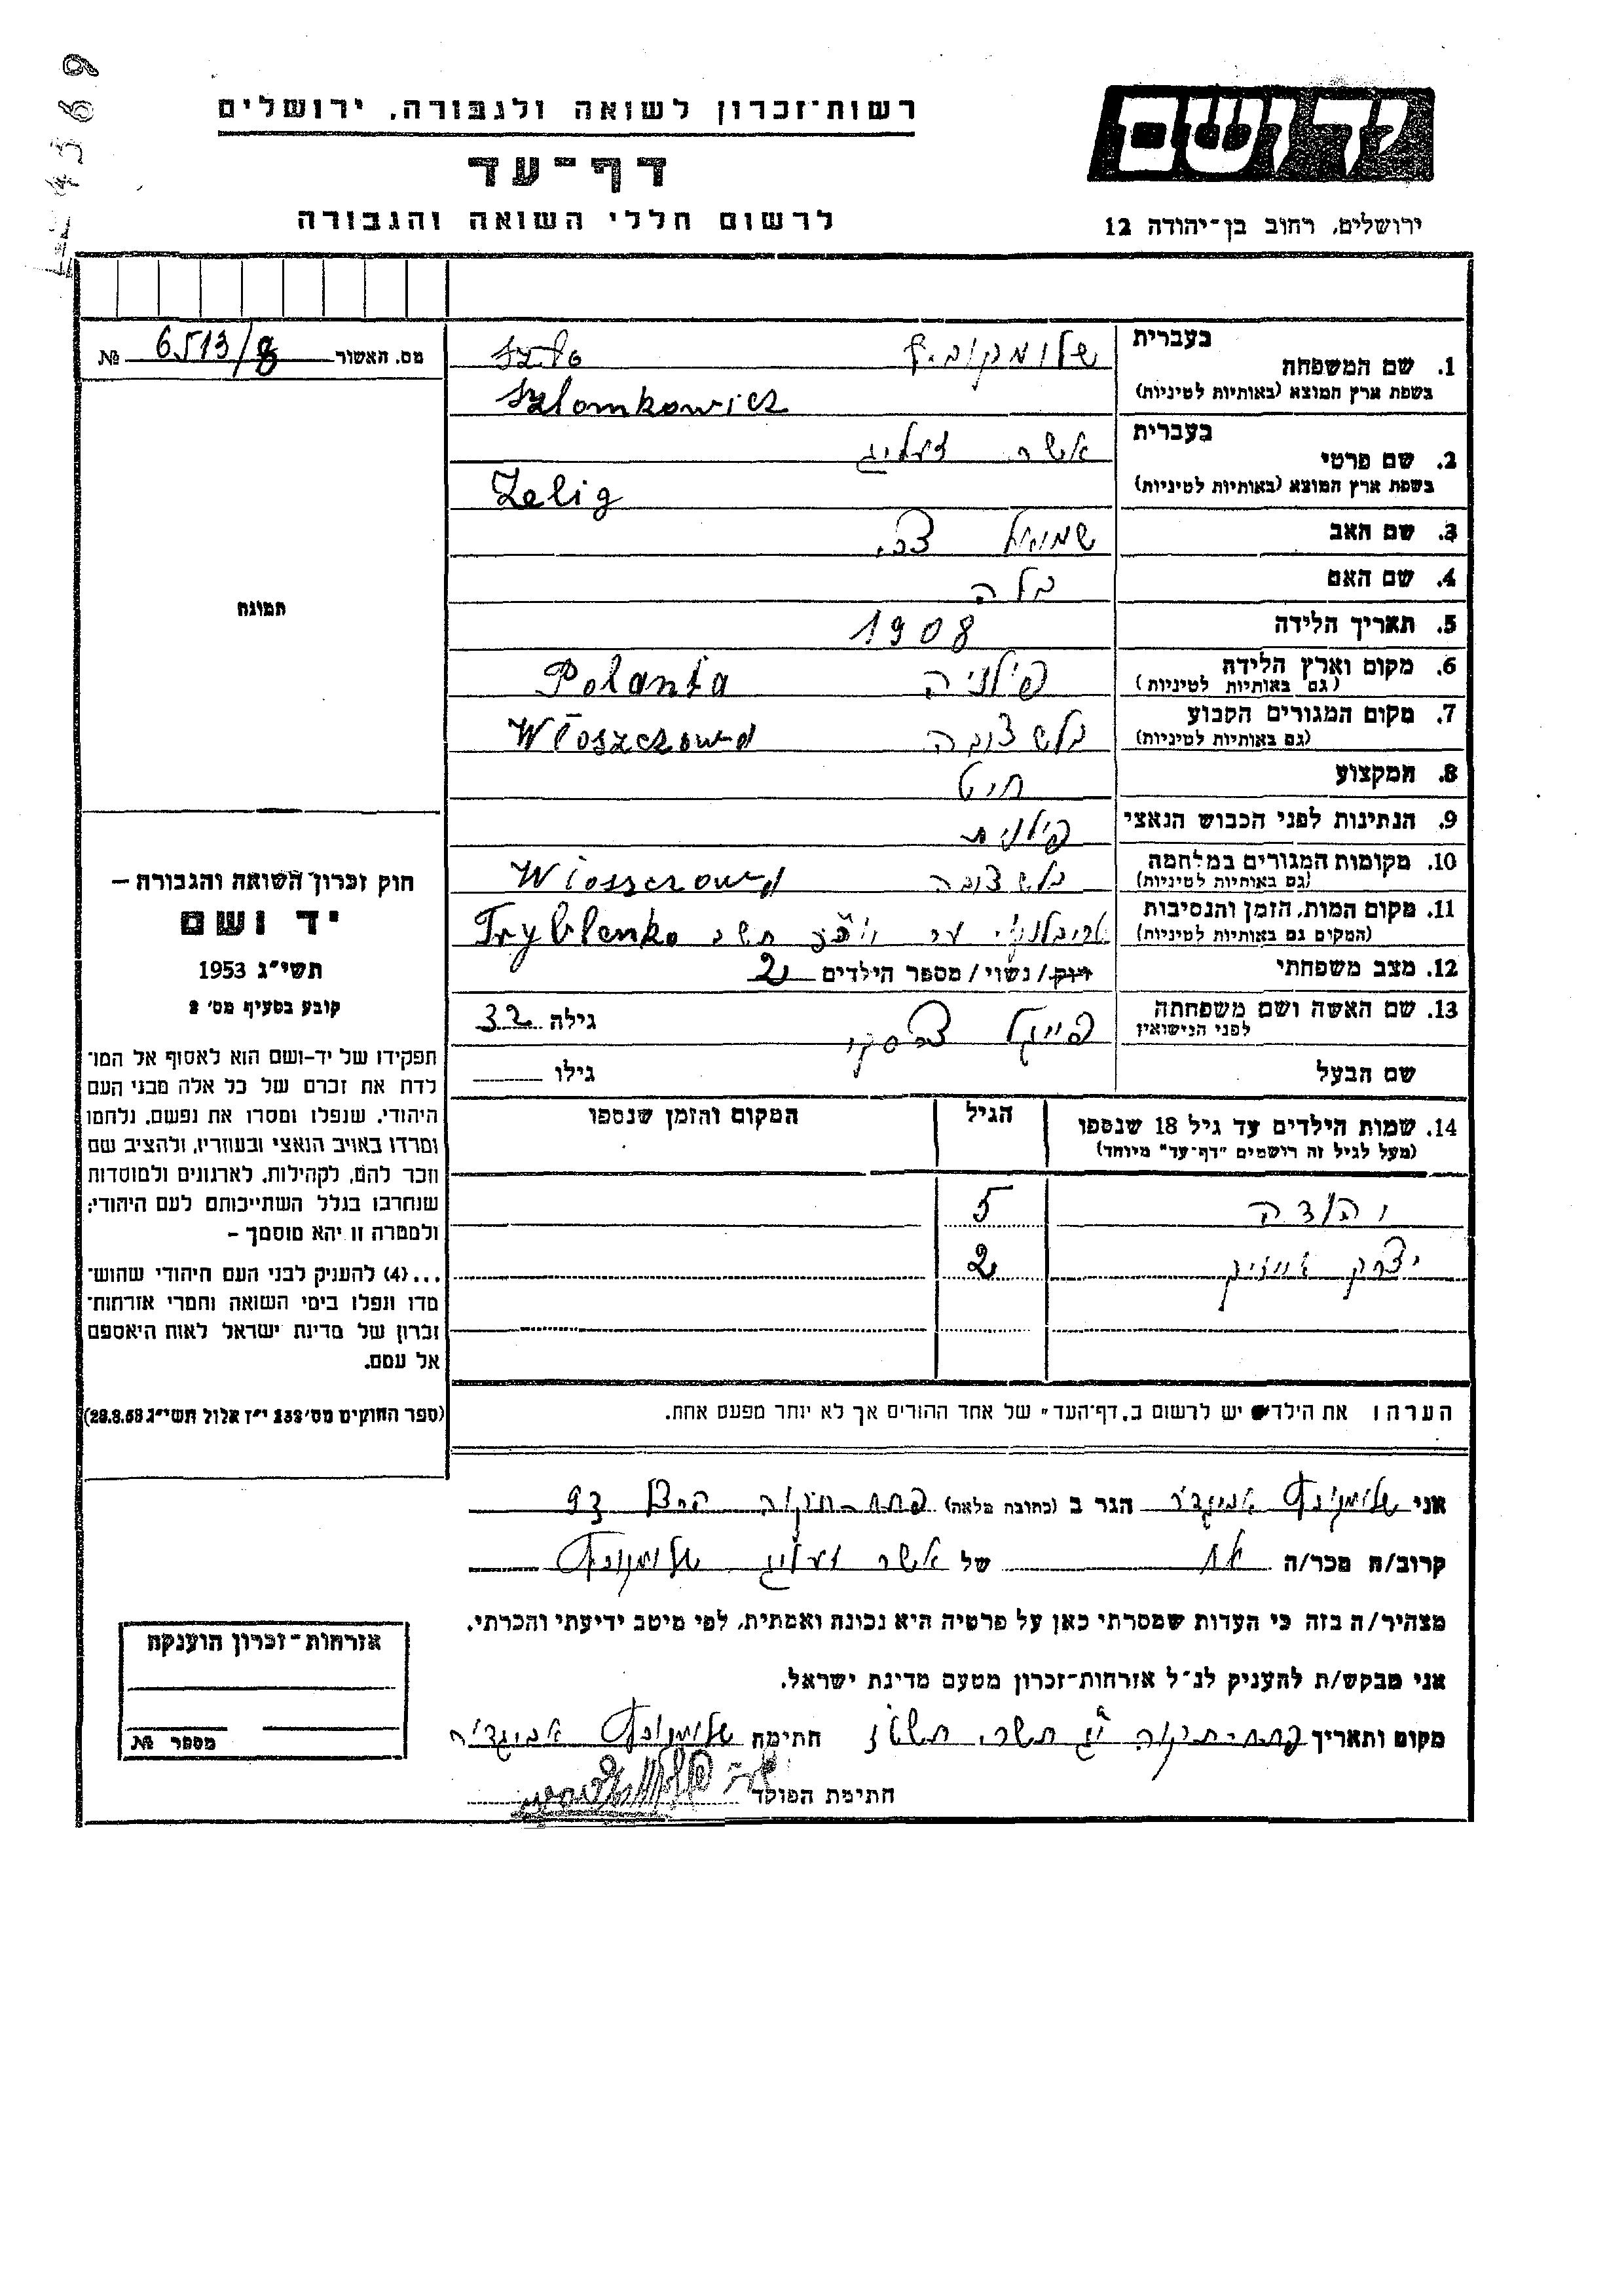 69 43
רשות-זכרון לשואה ולגבורה, ירושלים
יד ושם
דף-עד
לרשום חללי השואה והגבורה
ירושלים, רחוב בן-יהודה 12
מס. האשור 6513/8 №
תמונה
חוק זכרון השואה והגבורה –
יד ושם
תשי״ג 1953
קובע בסעיף מס׳ 2
תפקידו של יד-ושם הוא לאסוף אל המו־
לדת את זכרם של כל אלה מבני העם
היהודי, שנפלו ומסרו את נפשם, נלחמו
ומרדו באויב הנאצי ובעוזריו, ולהציב שם
וזכר להם, לקהילות, לארגונים ולמוסדות
שנחרבו בגלל השתייכותם לעם היהודי;
ולמטרה זו יהא מוסמך –
...(4) להעניק לבני העם היהודי שהוש־
מדו ונפלו בימי השואה והמרי אזרחות־
זכרון של מדינת ישראל לאות היאספם
אל עמם.
(ספר החוקים מס׳ 132 י״ז אלול תשי״ג 28.8.53)
1. שם המשפחה בעברית שלומקוביץ
בשפת ארץ המוצא (באותיות לטיניות) Szlomkowicz
2. שם פרטי בעברית אשר זעליג
בשפת ארץ המוצא (באותיות לטיניות) Zelig
3. שם האב שמואל צבי
4. שם האם בלה
5. תאריך הלידה 1908
6. מקום וארץ הלידה (גם באותיות לטיניות) פולניה Polanta
7. מקום המגורים הקבוע (גם באותיות לטיניות) ולשצובה Wloszczowa
8. המקצוע חייט
9. הנתינות לפני הכבוש הנאצי פולנית
10. מקומות המגורים במלחמה (גם באותיות לטיניות) ולשצובה Wloszczowa
11. מקום המות, הזמן והנסיבות (המקום גם באותיות לטיניות) Tryblenko
12. מצב משפחתי רווק/נשוי/מספר הילדים 2
13. שם האשה ושם משפחתה לפני הנישואין פייגל גילה 32
שם הבעל גילו
14. שמות הילדים עד גיל 18 שנספו (מעל לגיל זה רושמים ״דף-עד״ מיוחד) הגיל המקום והזמן שנספו
יהודה 5
יצחק אייזיק 2
הערה: את הילדים יש לרשום ב״דף-העד״ של אחד ההורים אך לא יותר מפעם אחת.
אני שלומקוביץ אביגדור הגר ב (כתובת מלאה) פתח-תקוה הרצל 93
קרוב/ה מכר/ה אח של אשר זעליג שלומקוביץ
מצהיר/ה בזה כי העדות שמסרתי כאן על פרטיה היא נכונה ואמתית, לפי מיטב ידיעתי והכרתי.
אני מבקש/ת להעניק לנ״ל אזרחות-זכרון מטעם מדינת ישראל.
מקום ותאריך פתח-תקוה תשרי חתימה שלומקוביץ אביגדור
חתימת הפוקד
אזרחות-זכרון הוענקה
מספר №